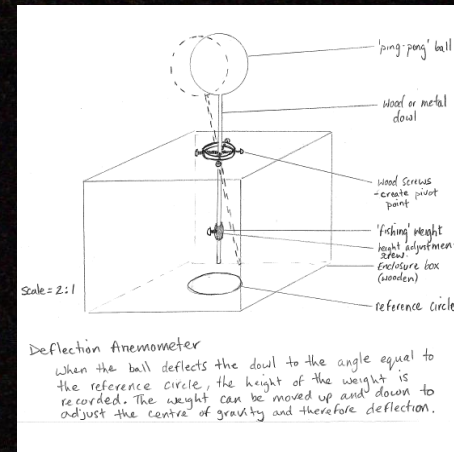 'ping-pong' ball
wood or metal
dowl
wood screws
-create pivot
point
'fishing' weight
height adjustment
screw.
Enclosure box
(wooden)
reference circle
Scale = 2:1
Deflection Anemometer
When the ball deflects the dowl to the angle equal to
the reference circle, the height of the weight is
recorded. The weight can be moved up and down to
adjust the centre of gravity and therefore deflection.